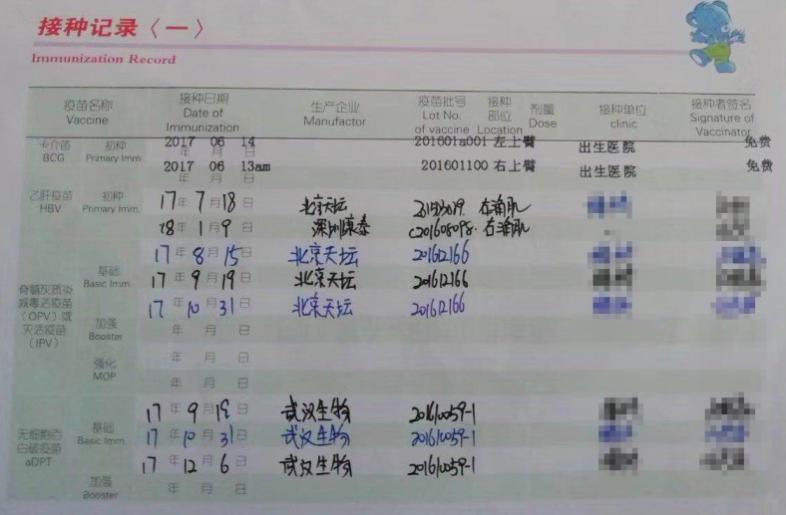 接种记录〈一〉
Immunization Record
疫苗名称 接种日期 生产企业 疫苗批号 接种部位 剂量 接种单位 接种者签名
Vaccine Date of Immunization Manufactor Lot No. of vaccine Location Dose clinic Signature of Vaccinator
卡介苗 BCG 初种 Primary Imm. 2017 06 14 年 月 日 201601a001 左上臂 出生医院 免费
2017 06 13am 年 月 日 201601100 右上臂 出生医院 免费
乙肝疫苗 HBV 初种 Primary Imm. 17年7月18日 北京天坛
18年1月9日 深圳康泰 C201606098. 右
17年8月15日 北京天坛 201612166
基础 Basic Imm. 17年9月19日 北京天坛 201612166
17年10月31日 北京天坛 201612166
脊髓灰质炎病毒活疫苗（OPV）或灭活疫苗（IPV）
加强 Booster 年 月 日
年 月 日
强化 MOP 年 月 日
年 月 日
无细胞百白破疫苗 aDPT
基础 Basic Imm. 17年9月19日 武汉生物 20161059-1
17年10月31日 武汉生物 20161059-1
17年12月6日 武汉生物 20161059-1
加强 Booster 年 月 日